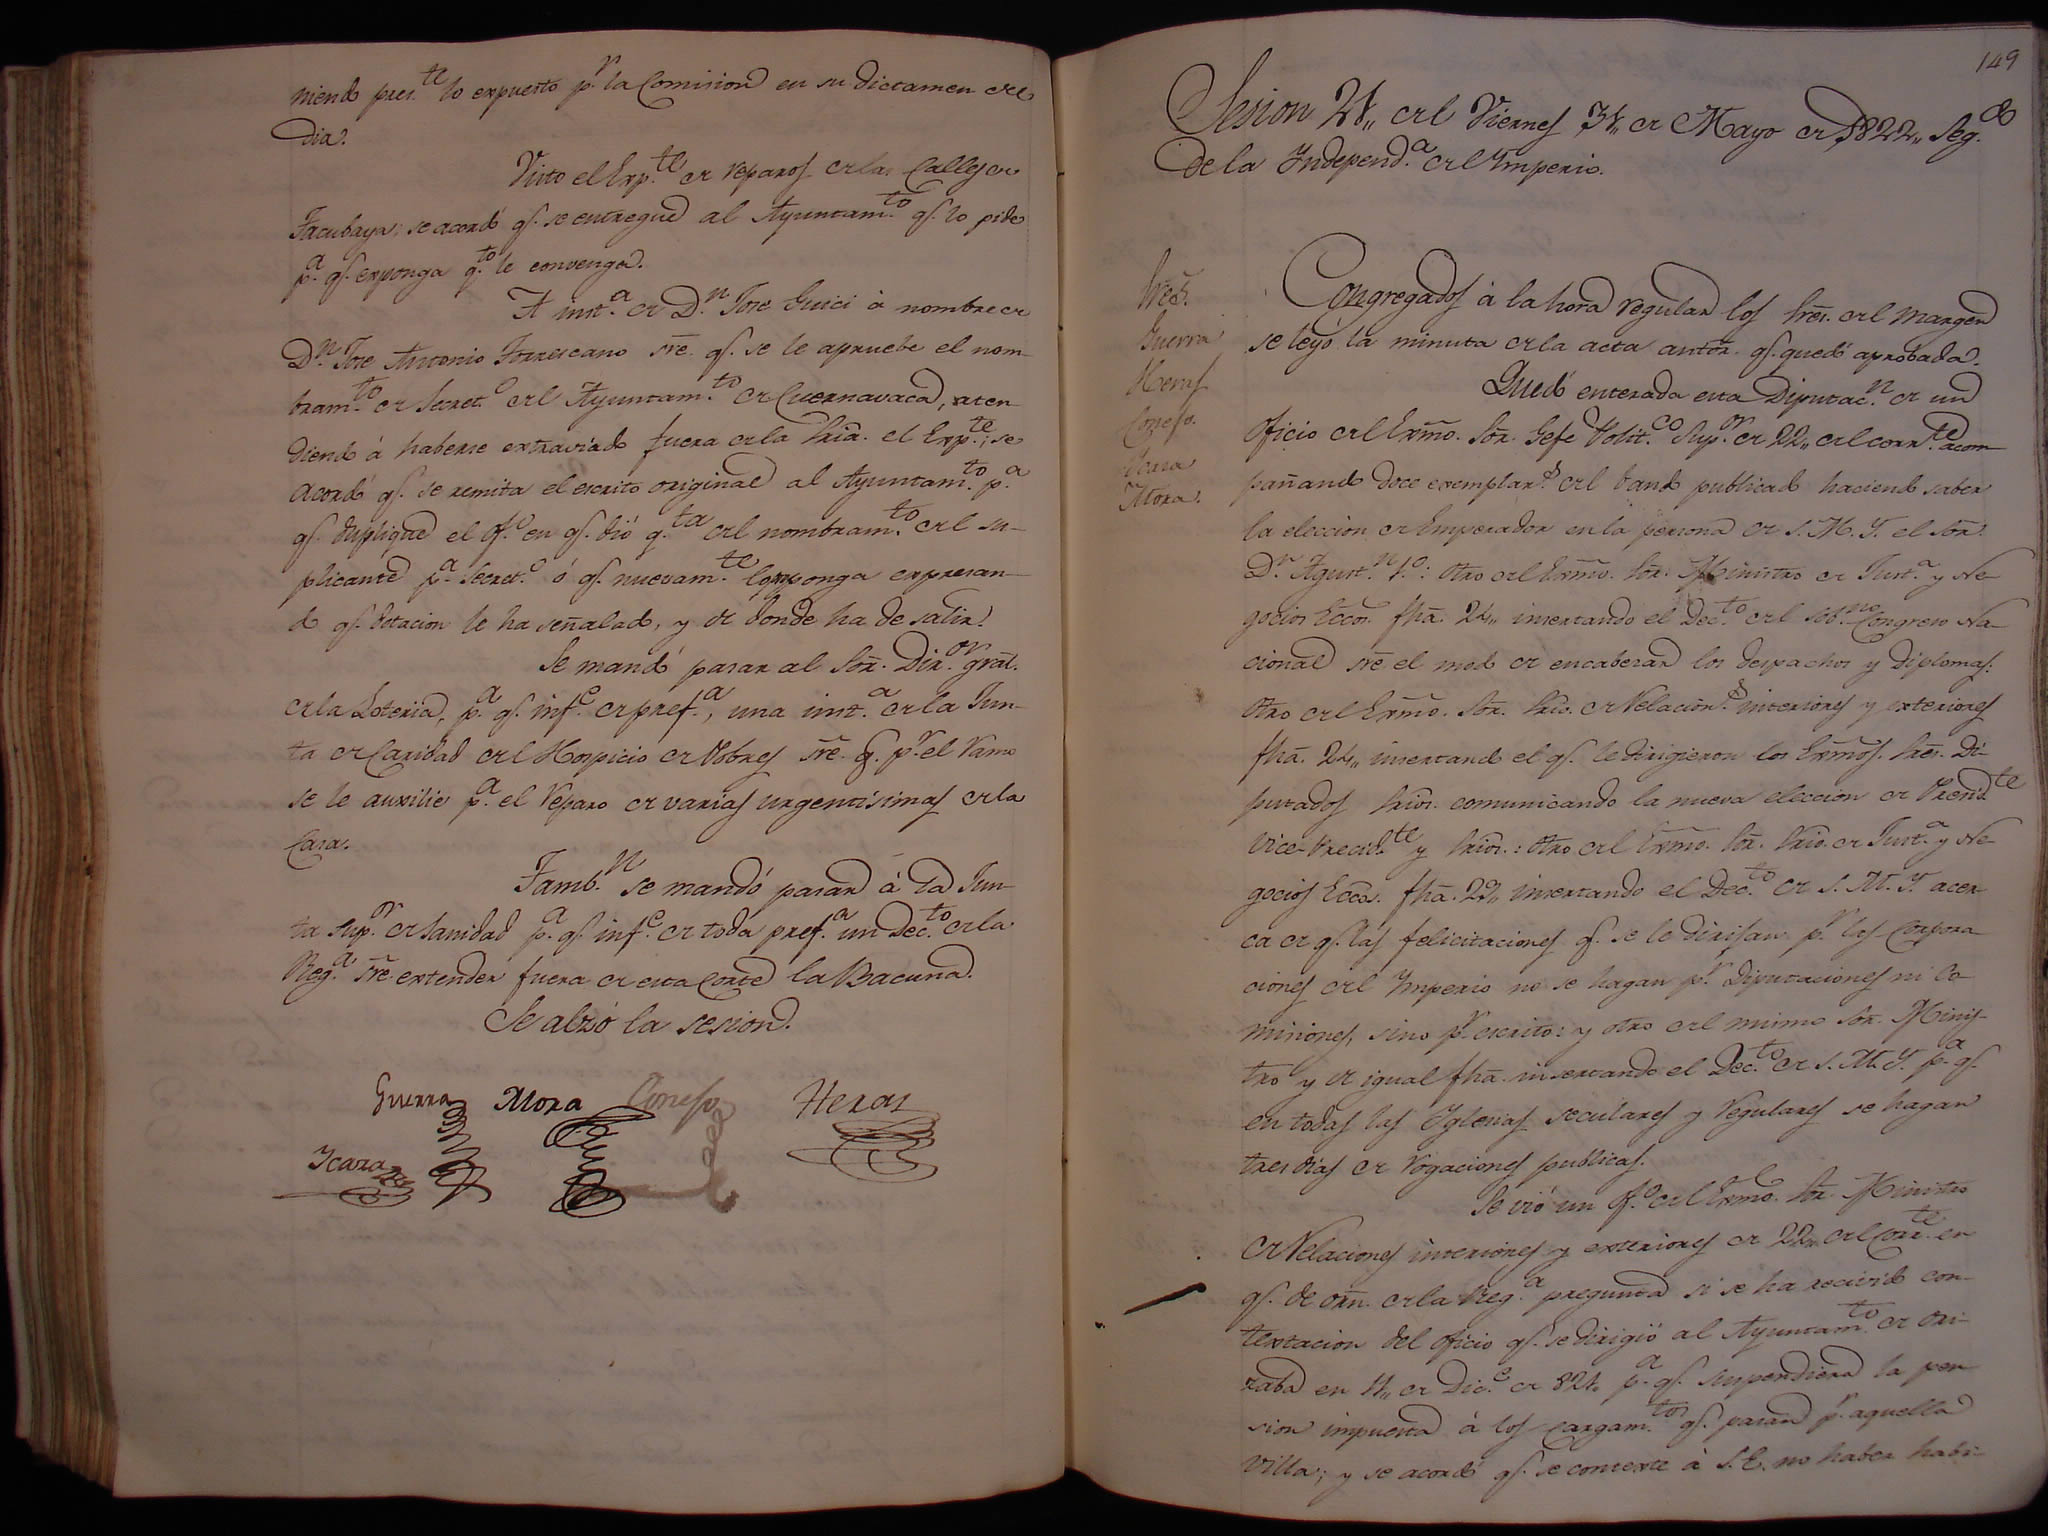 niendo pres.te lo expuesto p.r la Comision en su dictamen del
dia.
Visto el Exp.te de reparos de las Calles de
Tacubaya; se acordó q.e se entregue al Ayuntam.to q.e lo pide
p.a q.e exponga q.to le convenga.
A inst.a de D.n Jose Guici à nombre de
D.n Jose Antonio Torrescano sre. q.e se le apruebe el nom-
bram.to de Secret.o del Ayuntam.to de Cuernavaca, aten
diendo á haberse extraviado fuera de la Sria. el Exp.te; se
acordó q.e se remita el escrito original al Ayuntam.to p.a
q.e duplique el of.o en q.e dió q.ta del nombram.to del su-
plicante p.a Secret.o ó q.e nuevam.te lo proponga expresan-
do q.e dotacion le ha señalado, y de donde ha de salir.
Se mandó pasar al Sôr. Dir.or gral.
de la Loteria, p.a q.e inf.e de pref.a, una inst.a de la Jun-
ta de Caridad del Hospicio de Pobres sre. q. p.r el Ramo
se le auxilie p.a el reparo de varias urgentísimas de la
Casa.
Tamb.n se mandó pasar à la Jun-
ta Sup.or de Sanidad p.a q.e inf.e de toda pref.a un Dec.to de la
Reg.a sre. extender fuera de esta Corte la Bacuna.
Se alzó la sesion.
Guerra Mora Conejo Heras
Icaza
149
Sesion 21,, del Viernes 31,, de Mayo de 1822,, Seg.do
de la Independ.a del Imperio.
Sres.
Guerra
Heras
Conejo.
Icaza
Mora.
Congregados à la hora regular los Sres. del margen
se leyó la minuta de la acta antôr. q.e quedó aprobada.
Quedó enterada esta Diputac.n de un
oficio del Exmo. Sôr. Gefe Polit.co Sup.or de 22,, del corr.te acom-
pañando doce exemplar.s del bando publicado haciendo saber
la eleccion de Emperador en la persona de S. M. Y. el Sôr.
D.n Agust.n 1.o: otro del Exmo. Sôr. Ministro de Just.a y Ne-
gocios Eccos. fha. 24,, insertando el Dec.to del Sob.no Congreso Na-
cional sre el modo de encabezar los despachos y diplomas:
otro del Exmo. Sôr. Srio. de Relacion.s interiores y exteriores
fha. 24,, insertando el q.e le dirigieron los Exmos. Sres. Di-
putados Srios. comunicando la nueva eleccion de Presid.te
Vice-Presid.te y Srios.: otro del Exmo. Sôr. Srio. de Just.a y Ne-
gocios Eccos. fha. 29,, insertando el Dec.to de S. M. Y. acer
ca de q.e las felicitaciones q.e se le dirijan p.r las Corpora
ciones del Imperio no se hagan p.r Diputaciones ni Co-
misiones, sino p.r escrito: y otro del mismo Sôr. Minis-
tro y de igual fha. insertando el Dec.to de S. M. Y. p.a q.e
en todas las Iglesias seculares y regulares se hagan
tres dias de rogaciones publicas.
Se vió un of.o del Exmo. Sôr. Ministro
de Relaciones interiores y exteriores de 22,, del corr.te en
q.e de orn. de la Reg.a pregunta si se ha recivido con-
textacion del oficio q.e se dirigió al Ayuntam.to de Ori-
zaba en 11,, de Dic.e de 821. p.a q.e suspendiera la pen
sion impuesta à los cargam.tos q.e pasan p.r aquella
Villa; y se acordó q.e se contexte à S. E. no haber habi-